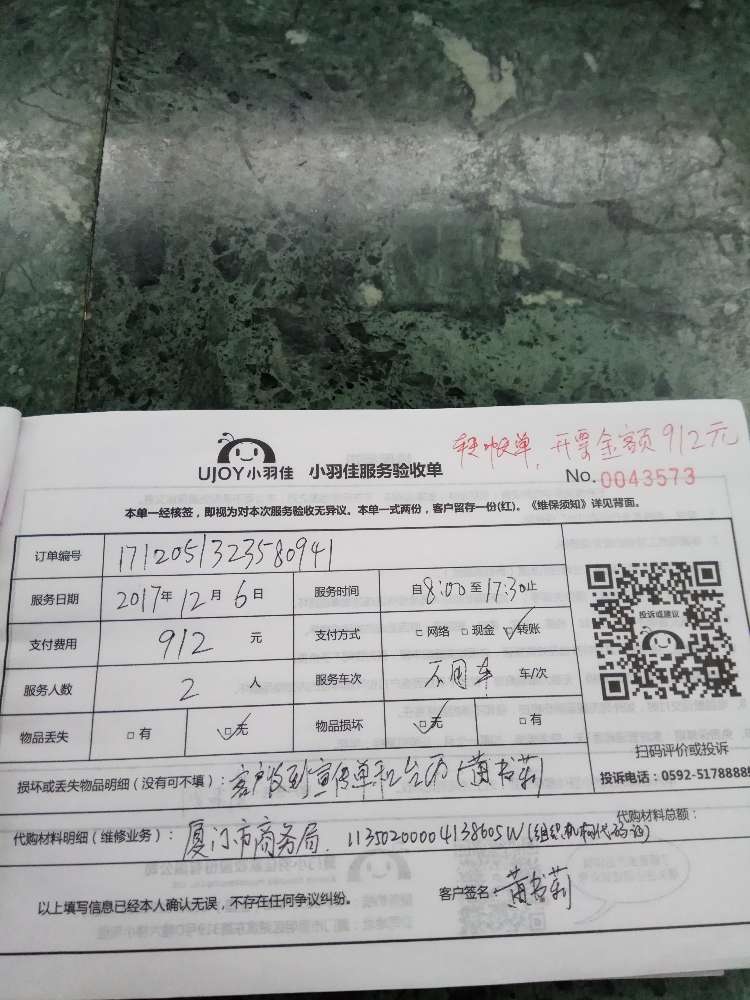 转账单,开票金额912元
UJOY小羽佳 小羽佳服务验收单 No.0043573
本单一经核签,即视为对本次服务验收无异议。本单一式两份,客户留存一份(红)。《维保须知》详见背面。
订单编号 1712051323580941
服务日期 2017年12月6日 服务时间 自8:00至17:30止
支付费用 912元 支付方式 □网络 □现金 □转账
投诉或建议
服务人数 2人 服务车次 不用车 车/次
物品丢失 □有 □无 物品损坏 □无 □有
扫码评价或投诉
损坏或丢失物品明细(没有可不填): 客户收到宣传单和台历(黄书莉
投诉电话:0592-5178888
代购材料明细(维修业务): 厦门市商务局. 11350200004138605W(组织机构代码证)
代购材料总额:
以上填写信息已经本人确认无误,不存在任何争议纠纷。 客户签名: 黄书莉